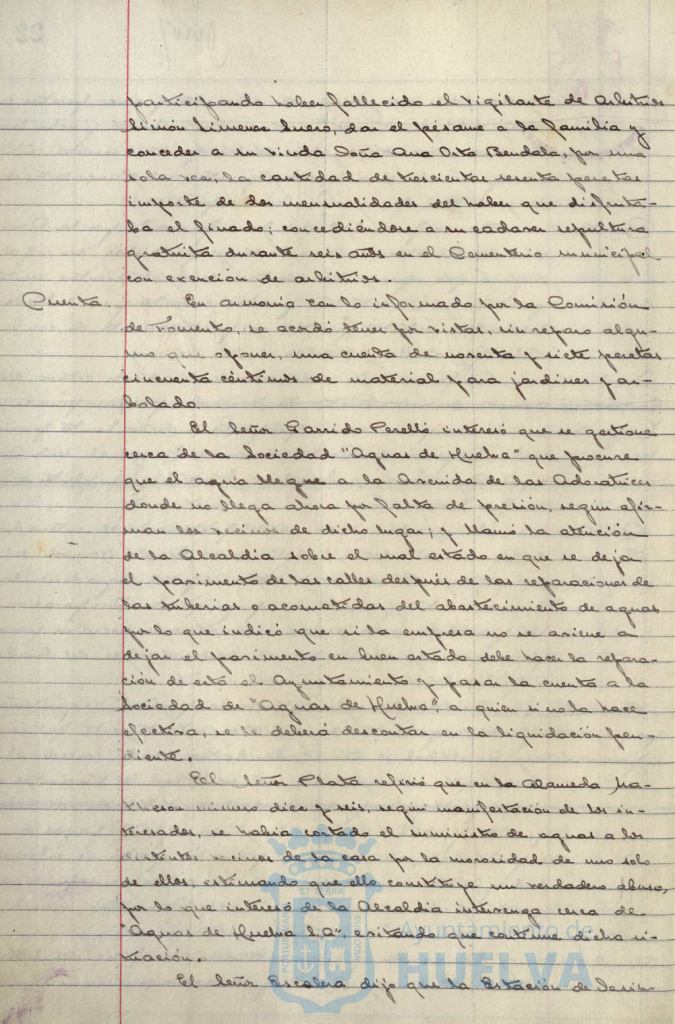 participando haber fallecido el vigilante de Arbitrios
Simón Limenes Suero, dar el pésame a la familia y
conceder a su viuda Doña Ana Orta Bendala, por una
sola vez, la cantidad de trescientas sesenta pesetas
importe de dos mensualidades del haber que disfruta-
ba el finado; concediéndose a su cadaver sepultura
gratuita durante seis años en el Cementerio municipal
con exención de arbitrios.
Cuenta. En armonia con lo informado por la Comisión
de Fomento, se acordó tener por vistas, sin reparo algu-
no que oponer, una cuenta de noventa y siete pesetas
cincuenta céntimos de material para jardines y ar-
bolado.
El Señor Garrido Perelló interesó que se gestione
cerca de la Sociedad "Aguas de Huelva" que procure
que el agua llegue a la Avenida de las Adoratrices
donde no llega ahora por falta de presión, segun afir-
man los vecinos de dicho lugar; y llamó la atención
de la Alcaldia sobre el mal estado en que se dejan
el pavimento de las calles después de las reparaciones de
las tuberias o acometidas del abastecimiento de aguas,
por lo que indicó que si la empresa no se aviene a
dejar el pavimento en buen estado debe hacer la repara-
ción de este el Ayuntamiento y pasar la cuenta a la
Sociedad de "Aguas de Huelva", a quien si no la hace
efectiva, se le deberá descontar en la liquidación pen-
diente.
El Señor Plata refirió que en la Alameda Ma-
theson número diez y seis, segun manifestación de los in-
teresados, se habia cortado el suministro de aguas a los
distintos vecinos de la casa por la morosidad de uno solo
de ellos, estimando que ello constituye un verdadero abuso,
por lo que interesó de la Alcaldia intervenga cerca de
"Aguas de Huelva S.A", evitando que continue dicha si-
tuación.
El Señor Escolera dijo que la Estación de Desin-
Ayuntamiento de
HUELVA